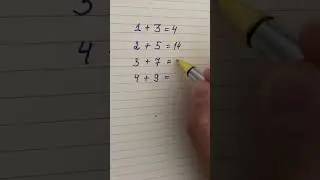 1 + 3 = 4
2 + 5 = 14
3 + 7 =
4 + 9 =